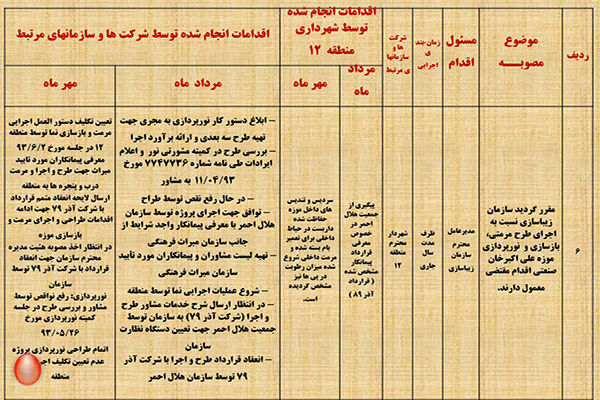 ردیف
موضوع
مصوبـــه
مسئول
اقدام
زمان‌بند
ی
اجرایی
شرکت
ها و
سازمانها
ی مرتبط
اقدامات انجام شده
توسط شهرداری
منطقه ۱۲
اقدامات انجام شده توسط شرکت ها و سازمانهای مرتبط
مرداد
ماه
مهر ماه
مرداد ماه
مهر ماه
۶
مقرر گردید سازمان
زیباسازی نسبت به
اجرای طرح مرمتی،
بازسازی و نورپردازی
موزه علی اکبرخان
صنعتی اقدام مقتضی
معمول دارند.
مدیرعامل
محترم
سازمان
زیباسازی
ظرف
مدت
سال
جاری
شهردار
محترم
منطقه
۱۲
پیگیری از
جمعیت هلال
احمر در
خصوص
معرفی
پیمانکار
( قرارداد
مشخص شده
آذر ۸۹ )
سردیس و تندیس
های داخل موزه
حفاظت شده
داربست در حیاط
داخلی برای تعمیر
بام بسته شده و
مرمت داخلی شروع
شده میزان رطوبت
در پی ها نیز
مشخص گردیده
است.
– ابلاغ دستور کار نورپردازی به مجری جهت
تهیه طرح سه بعدی و ارائه برآورد اجرا
– بررسی طرح در کمیته مشورتی نور و اعلام
ایرادات طی نامه شماره ۷۷۴۷۷۳۶ مورخ
۱۱/۰۴/۹۳ به مشاور
– در حال رفع نقص توسط طراح
– توافق جهت اجرای پروژه توسط سازمان
هلال احمر با معرفی پیمانکار واجد شرایط از
جانب سازمان میراث فرهنگی
– تهیه لیست مشاوران و پیمانکاران مورد تایید
سازمان میراث فرهنگی
– شروع عملیات اجرایی نما توسط منطقه
– در انتظار ارسال شرح خدمات مشاور طرح
و اجرا (شرکت آذر ۷۹) به سازمان توسط
جمعیت هلال احمر جهت تعیین دستگاه نظارت
سازمان
– انعقاد قرارداد طرح و اجرا با شرکت آذر
۷۹ توسط سازمان هلال احمر
تعیین تکلیف دستور العمل اجرایی
مرمت و بازسازی نما توسط منطقه
۱۲ در جلسه مورخ ۹۳/۶/۲
معرفی پیمانکاران مورد تایید
میراث جهت طرح و اجرا و مرمت
درب و پنجره ها به منطقه
ارسال لایحه انعقاد متمم قرارداد
با شرکت آذر ۷۹ جهت ادامه
اقدامات طراحی و اجرای مرمت و
بازسازی موزه
در انتظار اخذ مصوبه هئیت مدیره
محترم سازمان جهت انعقاد
قرارداد با شرکت آذر ۷۹ توسط
سازمان
نورپردازی: رفع نواقص توسط
مشاور و بررسی طرح در جلسه
کمیته نورپردازی مورخ
۹۳/۰۵/۲۶
اتمام طراحی نورپردازی پروژه
عدم تعیین تکلیف
منطقه